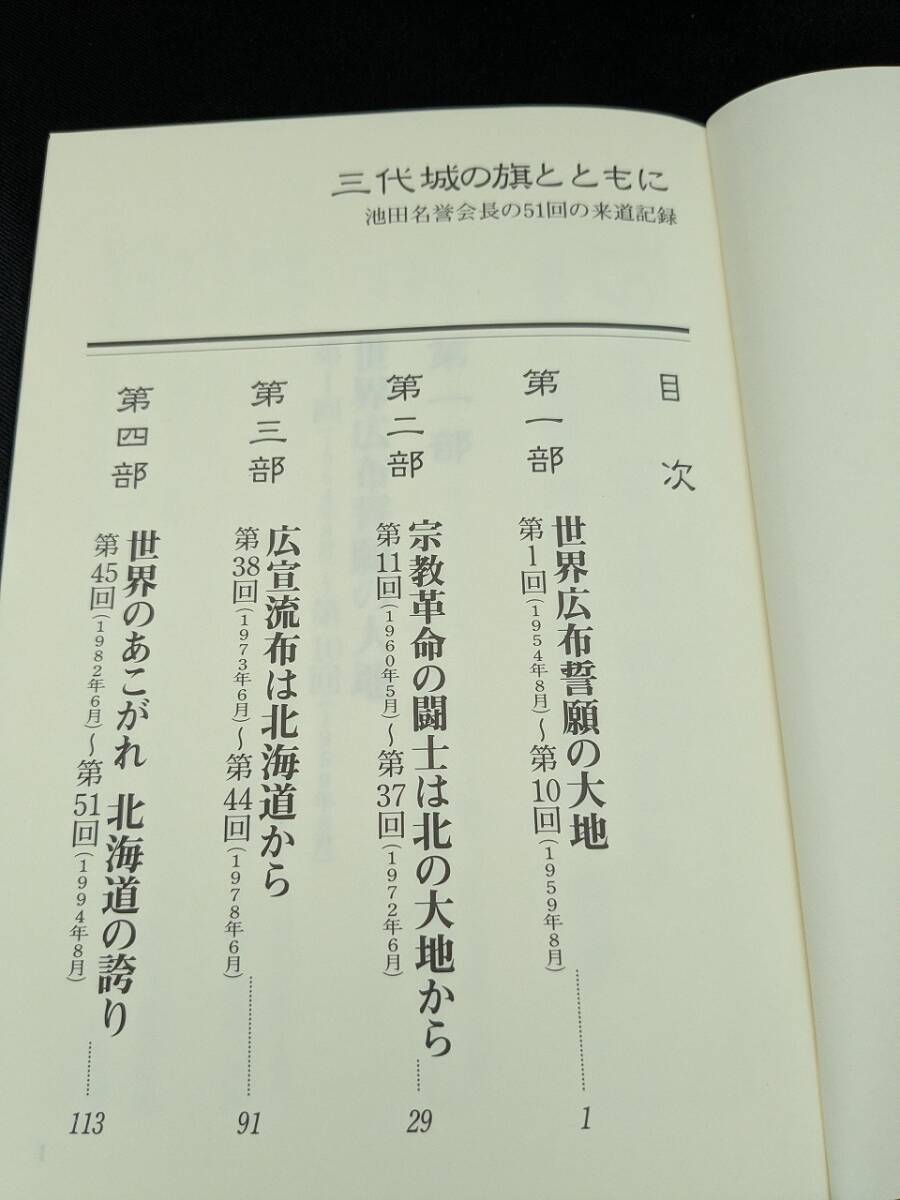 三代城の旗とともに
池田名誉会長の51回の来道記録
目次
第一部
世界広布誓願の大地
第1回(1954年8月)～第10回(1959年8月)
1
第二部
宗教革命の闘士は北の大地から
第11回(1960年5月)～第37回(1972年6月)
29
第三部
広宣流布は北海道から
第38回(1973年6月)～第44回(1978年6月)
91
第四部
世界のあこがれ 北海道の誇り
第45回(1982年6月)～第51回(1994年8月)
113